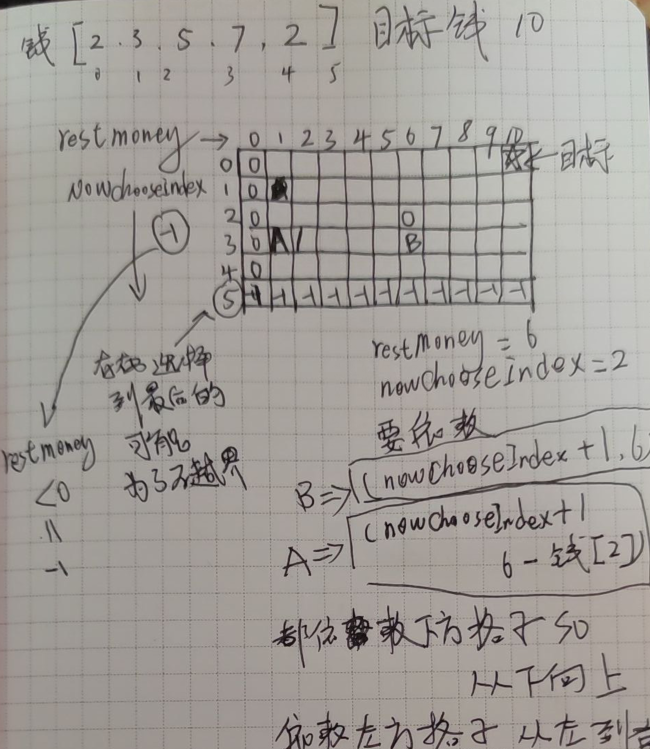 钱 [2. 3. 5. 7, 2] 目标钱 10
0 1 2 3 4 5
restmoney → 0 1 2 3 4 5 6 7 8 9 10
NowchooseIndex
0 0 ← 目标
1 0
2 0 0
-1 3 0 A B
4 0
5 -1 -1 -1 -1 -1 -1 -1 -1 -1 -1 -1
restmoney = 6
nowchooseIndex = 2
选择
到最后的
可能
为了不越界
restmoney
<0
=
-1
要依赖
B => (nowchooseIndex + 1, 6)
A => (nowchooseIndex + 1
6 - 钱[2])
都依赖下方格子 so
从下向上
依赖左方格子 从左到右